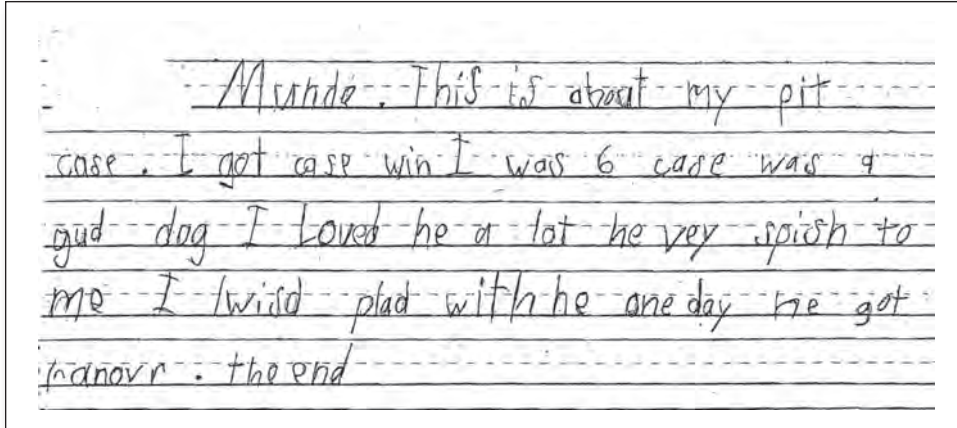 Munde. This is about my pit
case. I got case win I was 6 case was a
gud dog I Loved he a lot he vey spish to
me I lwisd plad with he one day he got
ranovr. the end